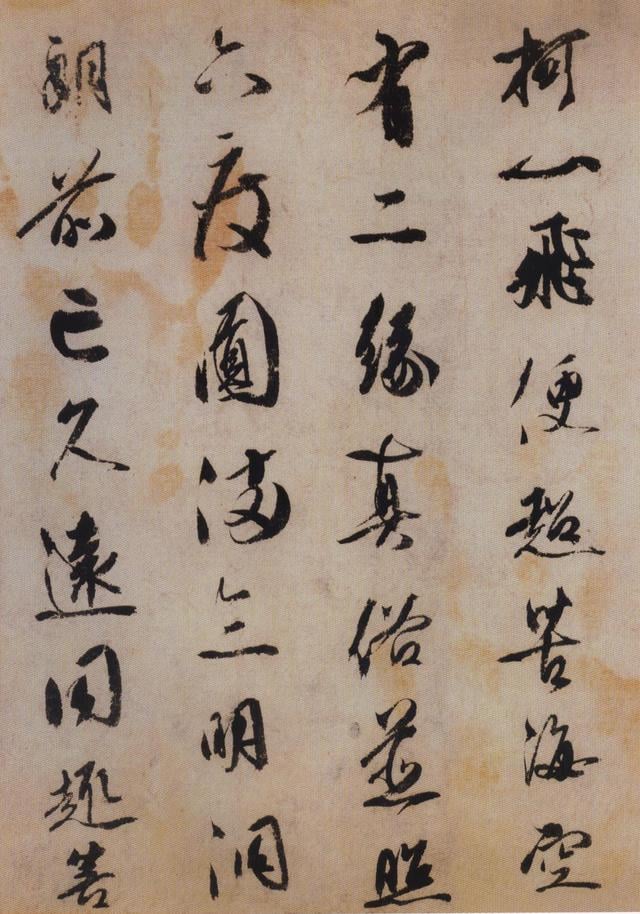 柯山飛便超苦海空
有二緣真俗並照
六度圓滿三明洞
朗前亡久遠同趣菩